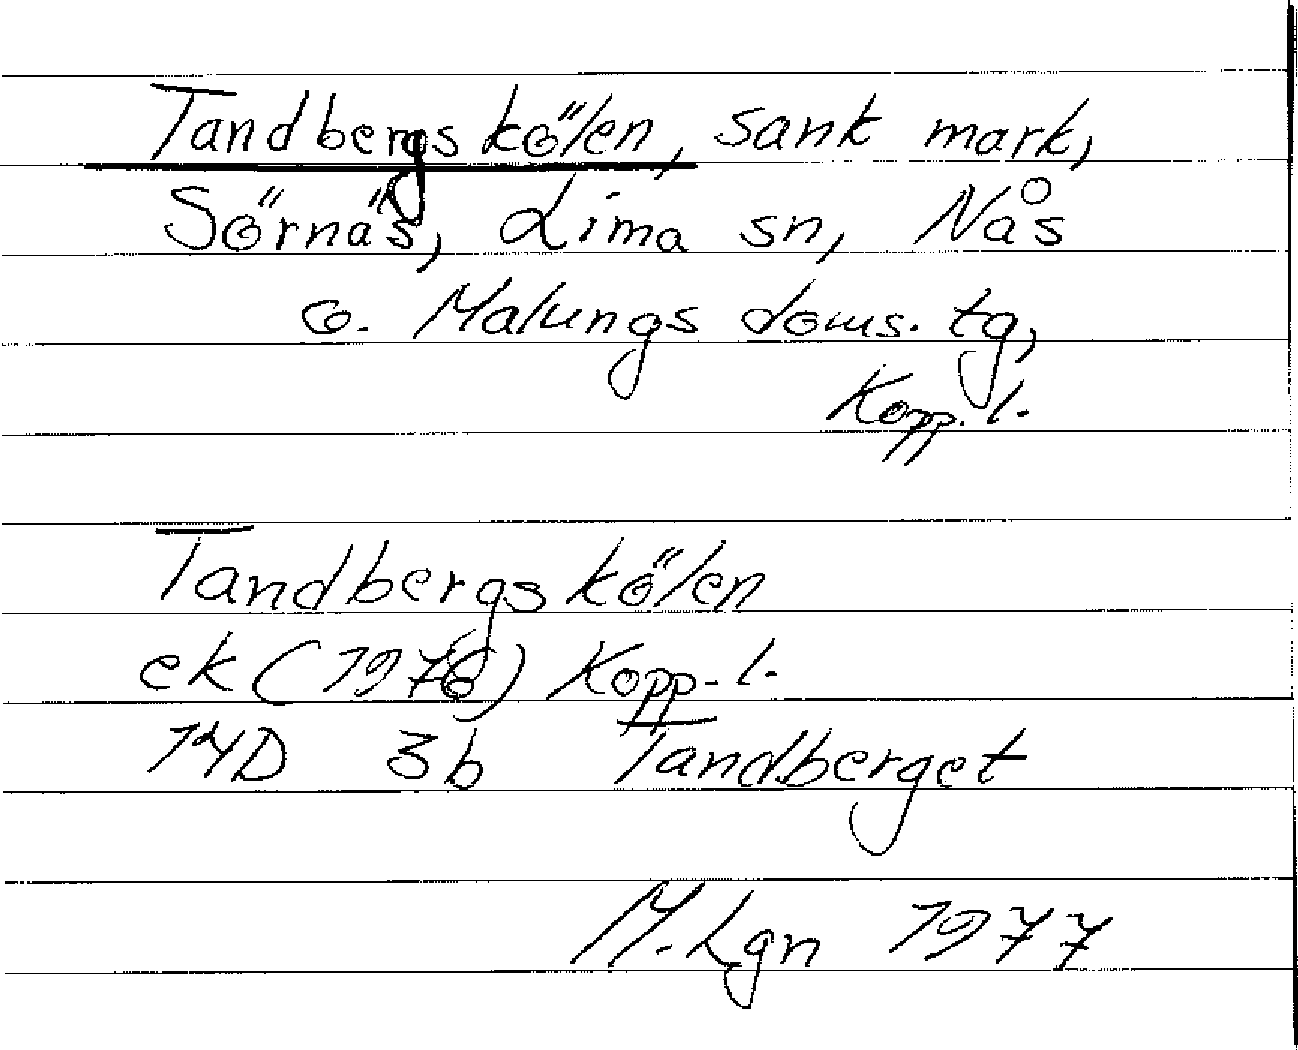 Tandbergskölen, sank mark,
Sörnäs, Lima sn, Nås
o. Malungs doms. tg,
Kopp. l.
Tandbergskölen
ek (1976) Kopp. l.
14D 3b Tandberget
M. Lgn 1977